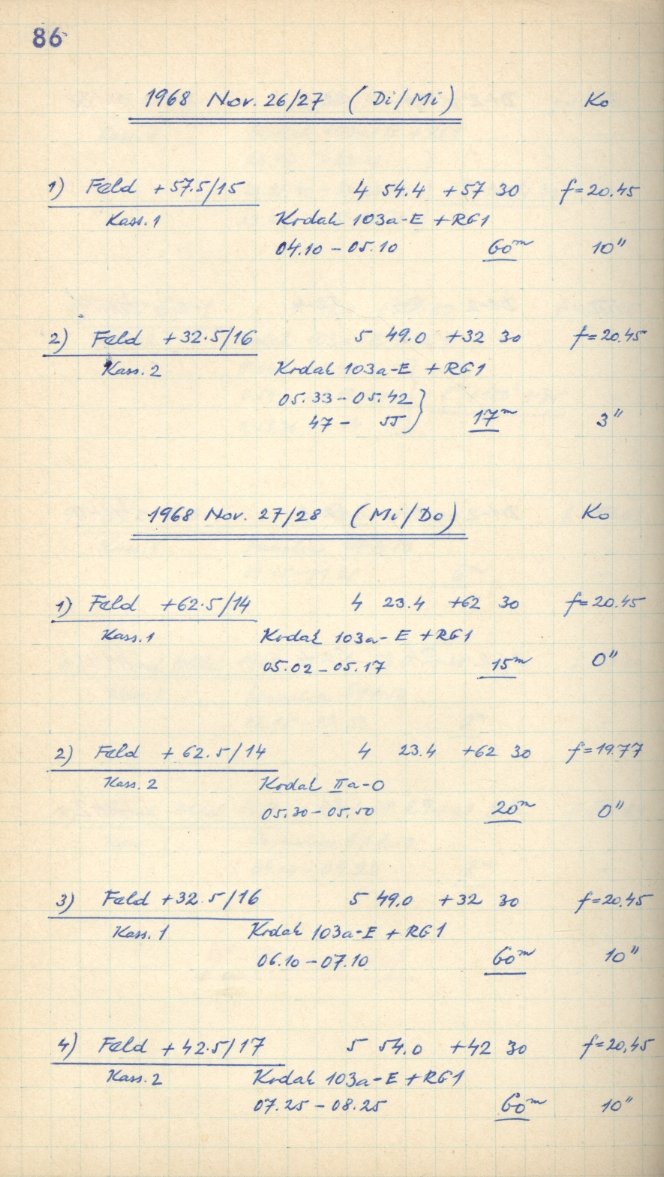 86
1968 Nov. 26/27 (Di/Mi) Ko
1) Feld +57.5/15 4 54.4 +57 30 f=20.45
Kass. 1 Kodak 103a-E +RG1
04.10 - 05.10 60m 10"
2) Feld +32.5/16 5 49.0 +32 30 f=20.45
Kass. 2 Kodak 103a-E +RG1
05.33 - 05.42
47 - 55 } 17m 3"
1968 Nov. 27/28 (Mi/Do) Ko
1) Feld +62.5/14 4 23.4 +62 30 f=20.45
Kass. 1 Kodak 103a-E +RG1
05.02 - 05.17 15m 0"
2) Feld +62.5/14 4 23.4 +62 30 f=19.77
Kass. 2 Kodak IIa-O
05.30 - 05.50 20m 0"
3) Feld +32.5/16 5 49.0 +32 30 f=20.45
Kass. 1 Kodak 103a-E +RG1
06.10 - 07.10 60m 10"
4) Feld +42.5/17 5 54.0 +42 30 f=20.45
Kass. 2 Kodak 103a-E +RG1
07.25 - 08.25 60m 10"